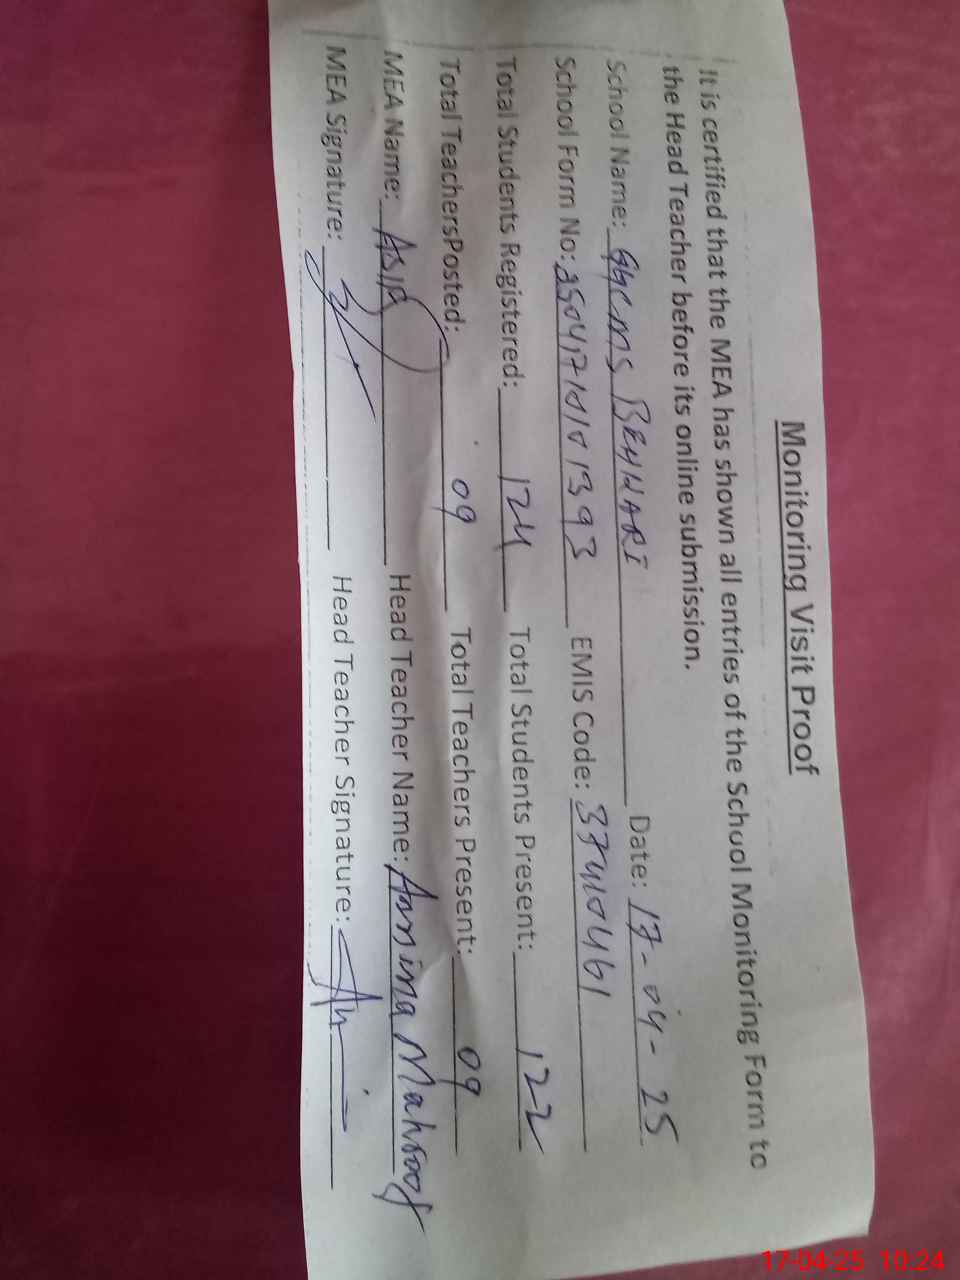 Monitoring Visit Proof
It is certified that the MEA has shown all entries of the School Monitoring Form to
the Head Teacher before its online submission.
School Name: GGCMS BEHHARI Date: 17-04-25
School Form No: 25041710101393 EMIS Code: 37410461
Total Students Registered: 124 Total Students Present: 122
Total TeachersPosted: 09 Total Teachers Present: 09
MEA Name: ASIF Head Teacher Name: Mahroof
MEA Signature: Head Teacher Signature:
17-04-25 10:24